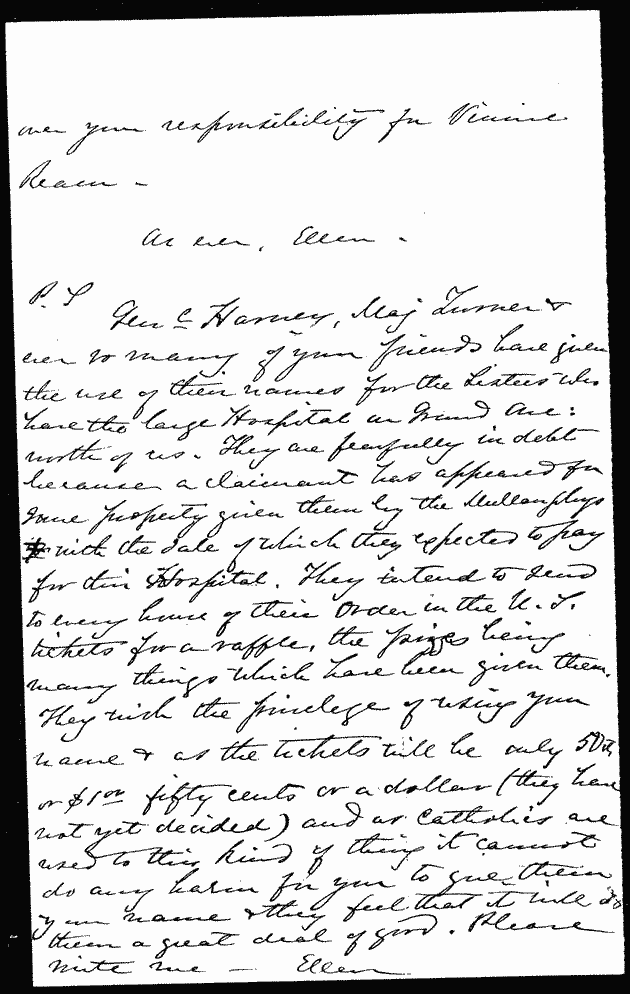 over your responsibility for Vinnie
Ream -
As ever, Ellen -
P. S Genl Harney, Maj Turner &
ever so many of your friends have given
the use of their names for the Sisters who
have the large Hospital on Grand Ave:
north of us. They are fearfully in debt
because a claimant has appeared for
some property given them by the Mullanphys
with the sale of which they expected to pay
for this Hospital. They intend to send
to every house of their Order in the U. S.
tickets for a raffle, the prizes being
many things which have been given them.
They wish the privilege of using your
name & as the tickets will be only 50cts
or $1.00 fifty cents or a dollar (they have
not yet decided) and as Catholics are
used to this kind of thing it cannot
do any harm for you to give them
your name & they feel that it will do
them a great deal of good. Please
write me - Ellen